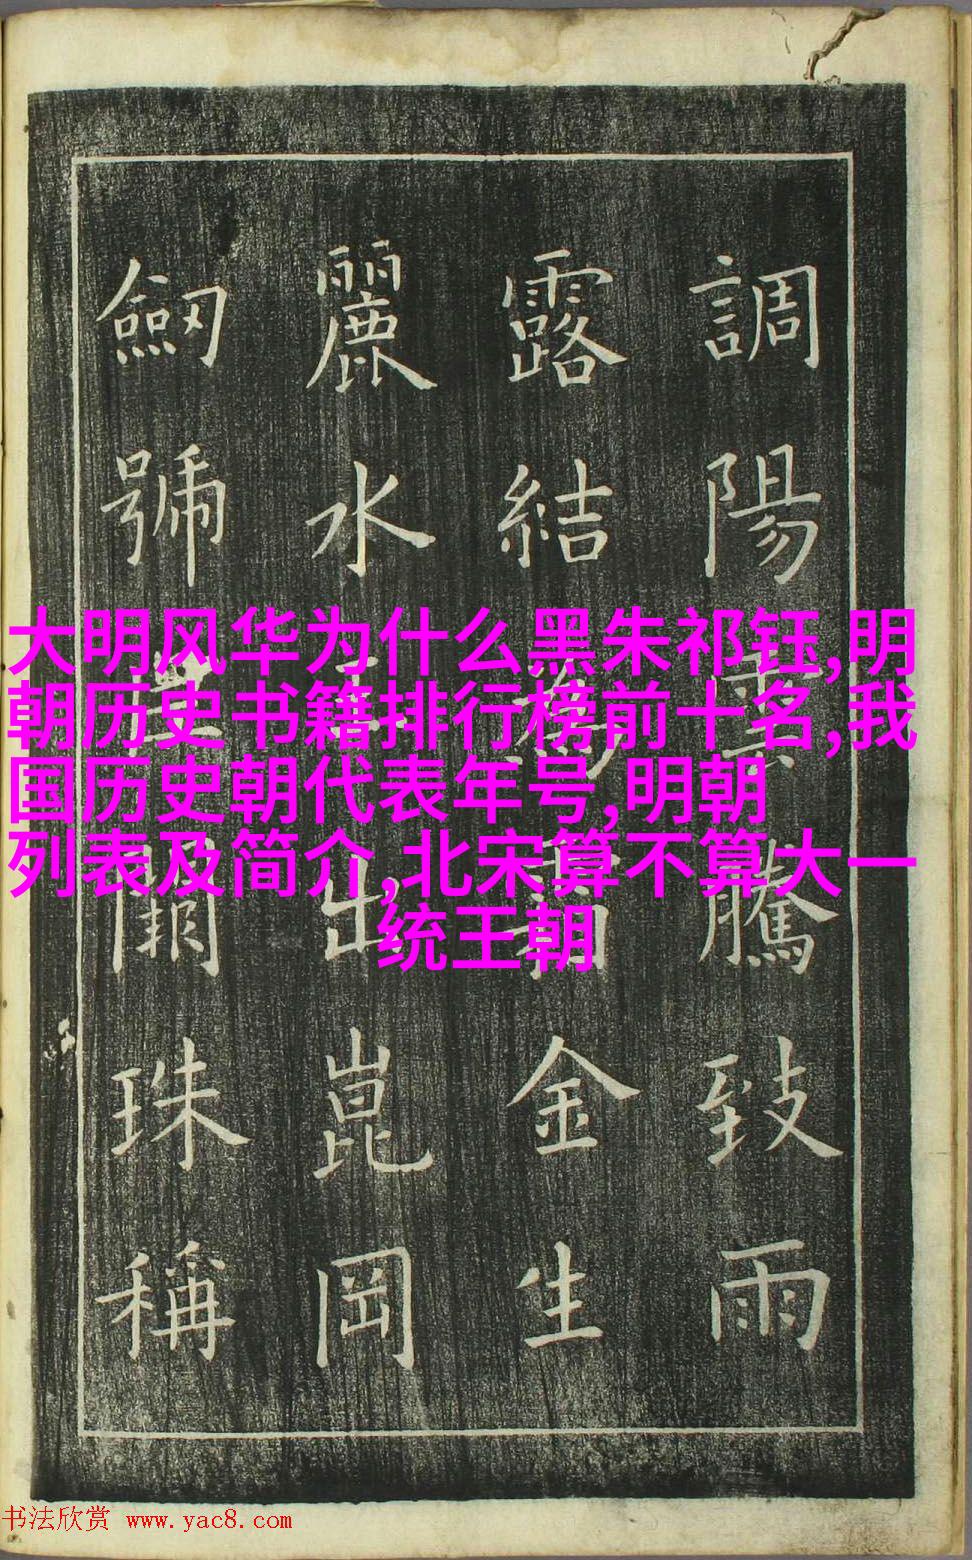 調陽雲騰致雨
露結為霜金生
麗水玉出崑岡
劒號巨闕珠稱
大明风华为什么黑朱祁钰,明
朝历史书籍排行榜前十名,我
国历史朝代表年号,明朝
列表及简介,北宋算不算大一
统王朝
书法欣赏 www.yac8.com